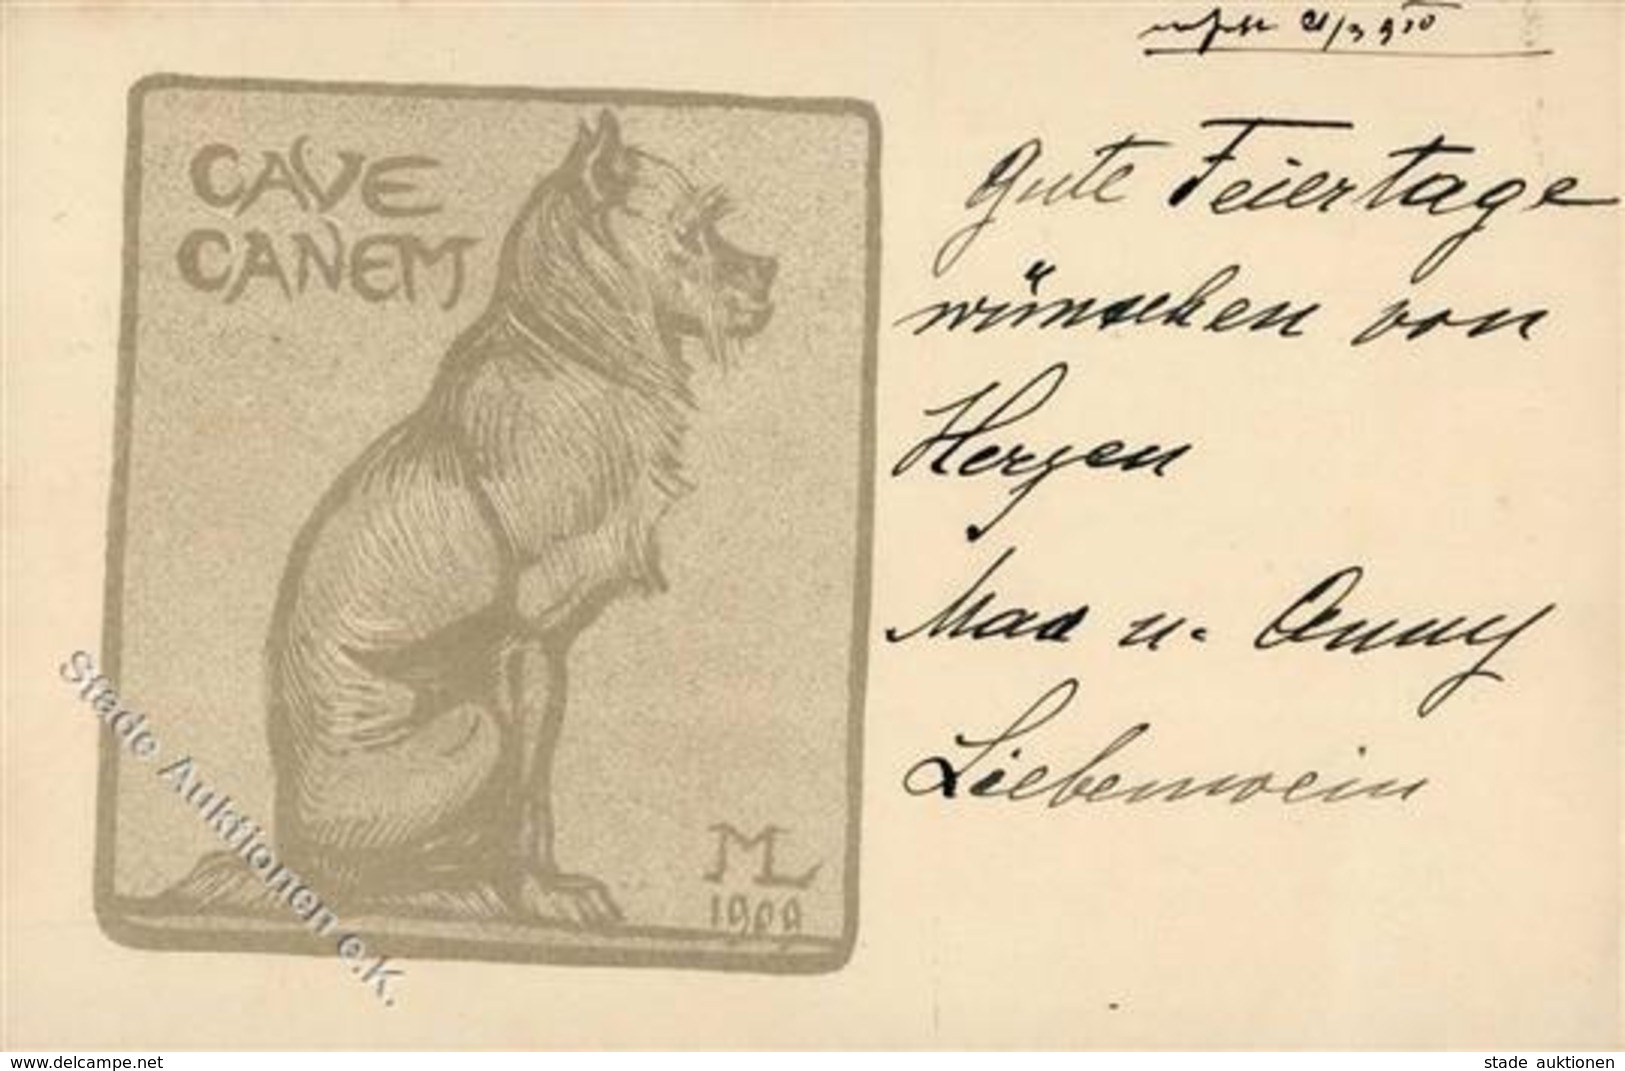 21/3 910
CAVE
CANEM
Gute Feiertage
wünschen von
Herzen
Max u. Änny
Liebenwein
ML
1909
Stade Auktionen e.K.
www.delcampe.net
stade auktionen